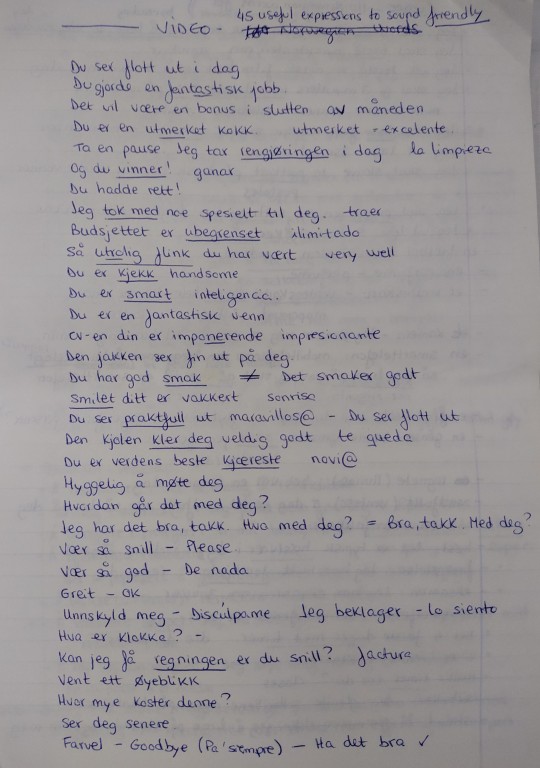 VIDEO - 45 useful expressions to sound friendly
Norwegian words
Du ser flott ut i dag
Du gjorde en fantastisk jobb.
Det vil være en bonus i slutten av måneden
Du er en utmerket kokk. utmerket = excelente.
Ta en pause. Jeg tar rengjøringen i dag la limpieza
Og du vinner! ganar
Du hadde rett!
Jeg tok med noe spesielt til deg. traer
Budsjettet er ubegrenset ilimitado
Så utrolig flink du har vært very well
Du er kjekk handsome
Du er smart inteligencia.
Du er en fantastisk venn
CV-en din er imponerende impresionante
Den jakken ser fin ut på deg.
Du har god smak ≠ Det smaker godt
Smilet ditt er vakkert sonrisa
Du ser praktfull ut maravillos@ - Du ser flott ut
Den kjolen kler deg veldig godt te queda
Du er verdens beste kjæreste novi@
Hyggelig å møte deg
Hvordan går det med deg?
Jeg har det bra, takk. Hva med deg? = Bra, takk. Med deg?
Vær så snill - Please
Vær så god - De nada
Greit - OK
Unnskyld meg - Discúlpame Jeg beklager - lo siento
Hva er klokka? -
Kan jeg få regningen er du snill? factura
Vent ett øyeblikk
Hvor mye koster denne?
Ser deg senere.
Farvel - Goodbye (Pa' siempre) - Ha det bra ✓